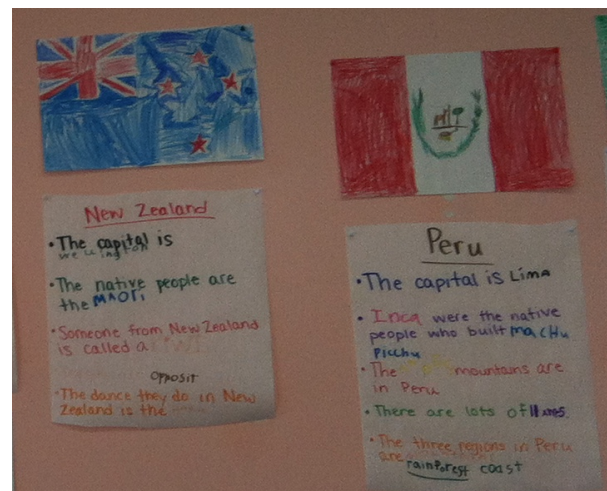 New Zealand
• The capital is
wellington
• The native people are
the MAORI
• Someone from New Zealand
is called a
Opposit
• The dance they do in New
Zealand is the
Peru
• The capital is Lima
• Inca were the native
people who built machu
Picchu
• The mountains are
in Peru
• There are lots of
• The three regions in Peru
are
rainforest coast